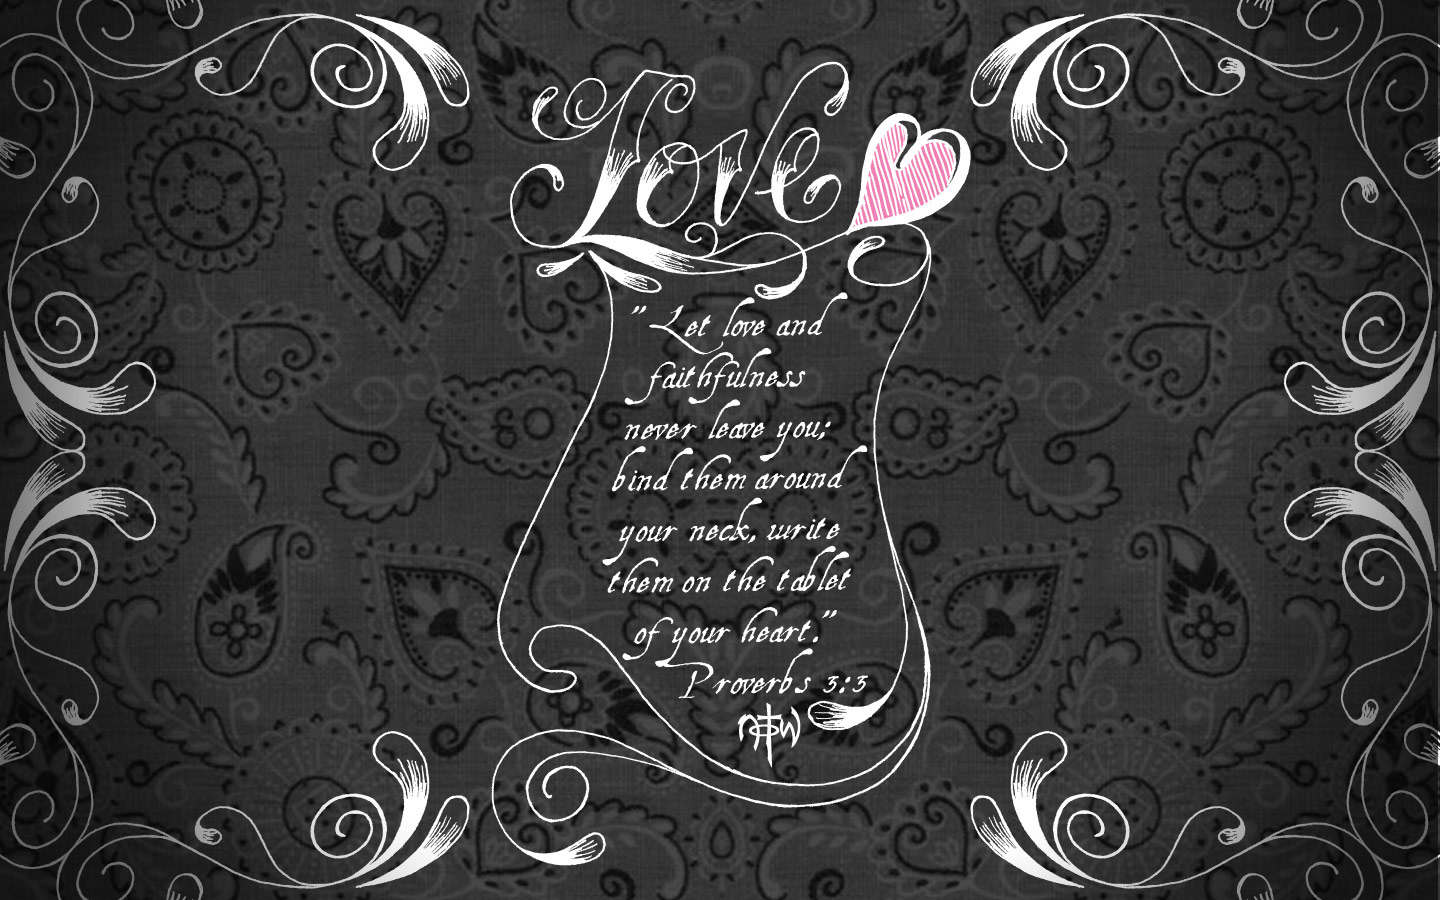 Love
"Let love and
faithfulness
never leave you;
bind them around
your neck, write
them on the tablet
of your heart."
Proverbs 3:3
NOTW